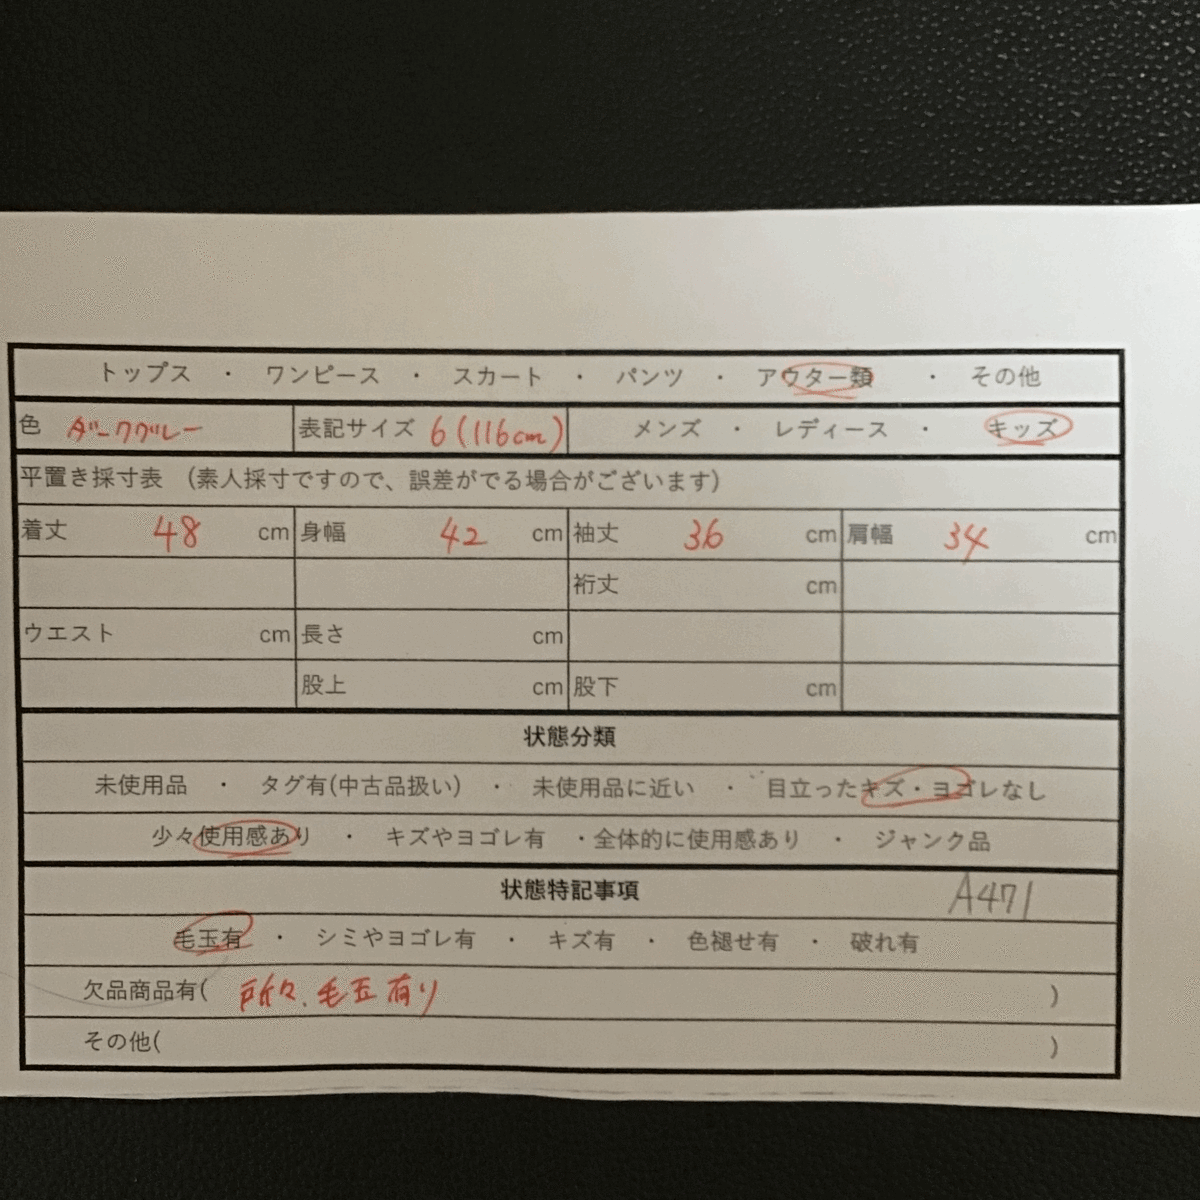 トップス ・ ワンピース ・ スカート ・ パンツ ・ アウター類 ・ その他
色 ダークグレー 表記サイズ 6(116cm) メンズ ・ レディース ・ キッズ
平置き採寸表 (素人採寸ですので、誤差がでる場合がございます)
着丈 48 cm 身幅 42 cm 袖丈 36 cm 肩幅 34 cm
裄丈 cm
ウエスト cm 長さ cm
股上 cm 股下 cm
状態分類
未使用品 ・ タグ有(中古品扱い) ・ 未使用品に近い ・ 目立ったキズ・ヨゴレなし
少々使用感あり ・ キズやヨゴレ有 ・全体的に使用感あり ・ ジャンク品
状態特記事項 A471
毛玉有 ・ シミやヨゴレ有 ・ キズ有 ・ 色褪せ有 ・ 破れ有
欠品商品有( 所々、毛玉有り )
その他( )